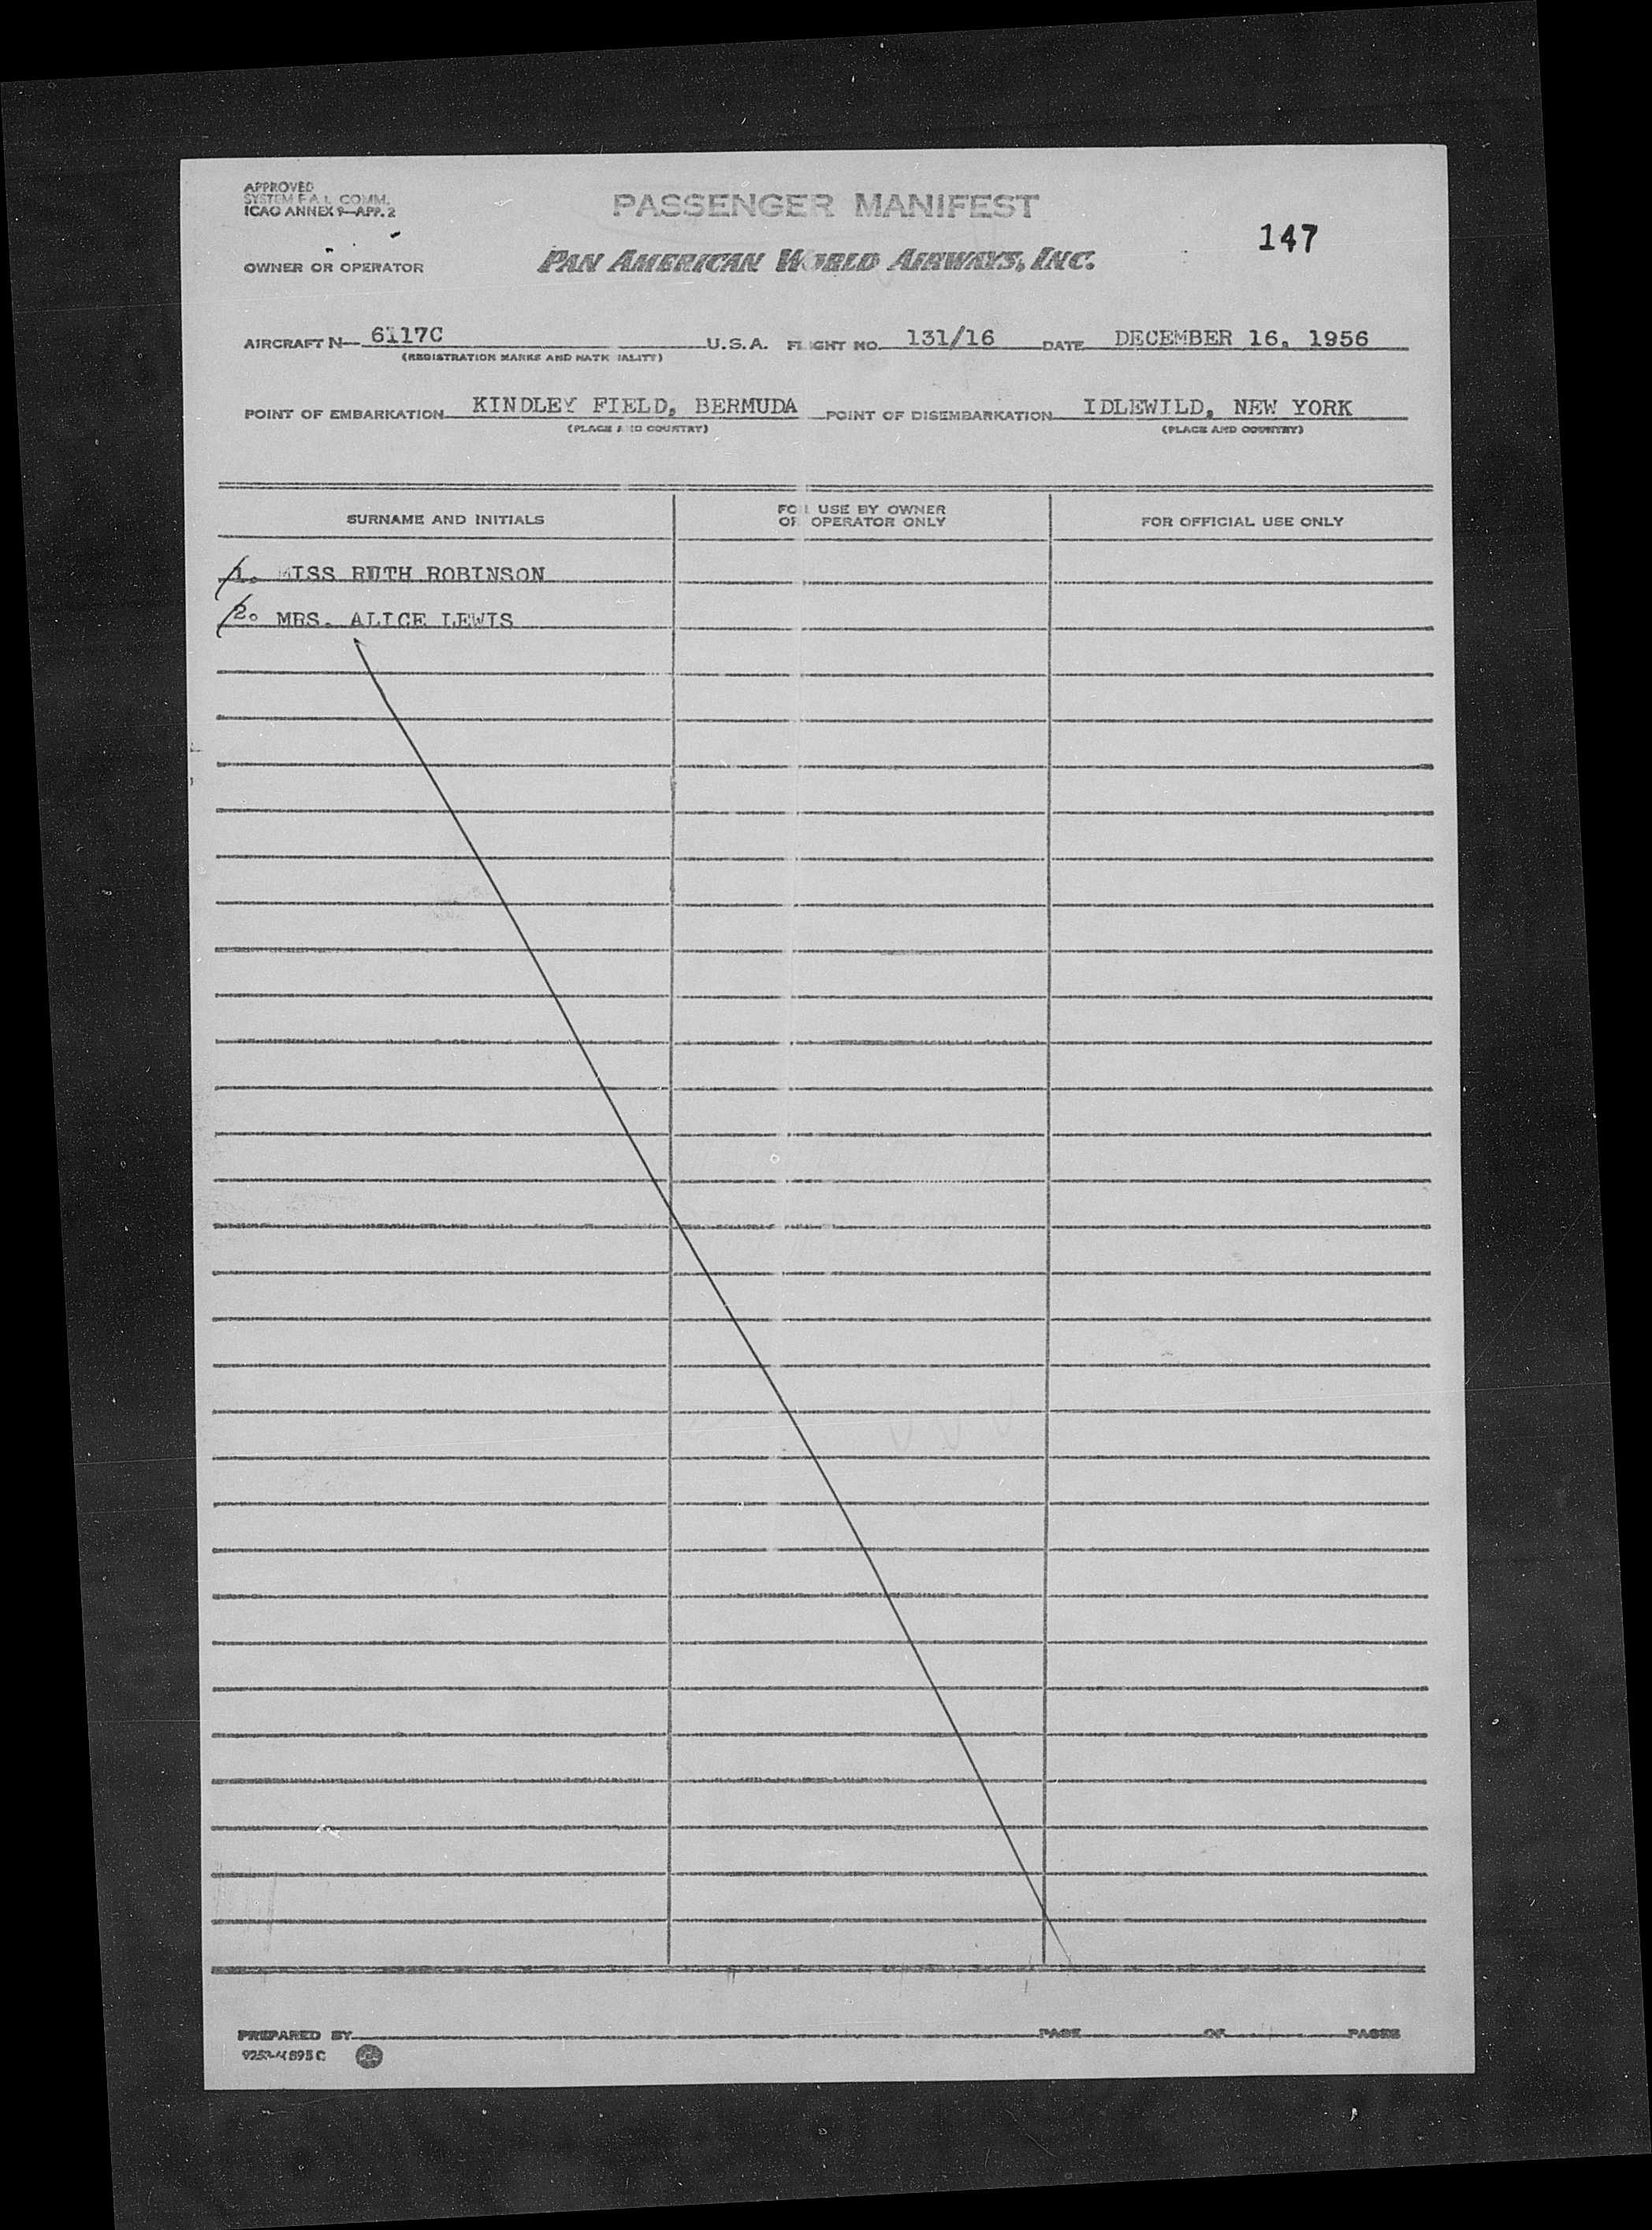 APPROVED
SYSTEM F A L COMM.
ICAO ANNEX 9—APP. 2
PASSENGER MANIFEST
147
OWNER OR OPERATOR
PAN AMERICAN WORLD AIRWAYS, INC.
AIRCRAFT N— 6117C U.S.A. FLIGHT NO. 131/16 DATE DECEMBER 16, 1956
(REGISTRATION MARKS AND NATIONALITY)
POINT OF EMBARKATION KINDLEY FIELD, BERMUDA POINT OF DISEMBARKATION IDLEWILD, NEW YORK
(PLACE AND COUNTRY) (PLACE AND COUNTRY)
SURNAME AND INITIALS
FOR USE BY OWNER
OR OPERATOR ONLY
FOR OFFICIAL USE ONLY
1. MISS RUTH ROBINSON
2. MRS. ALICE LEWIS
PREPARED BY PAGE OF PAGES